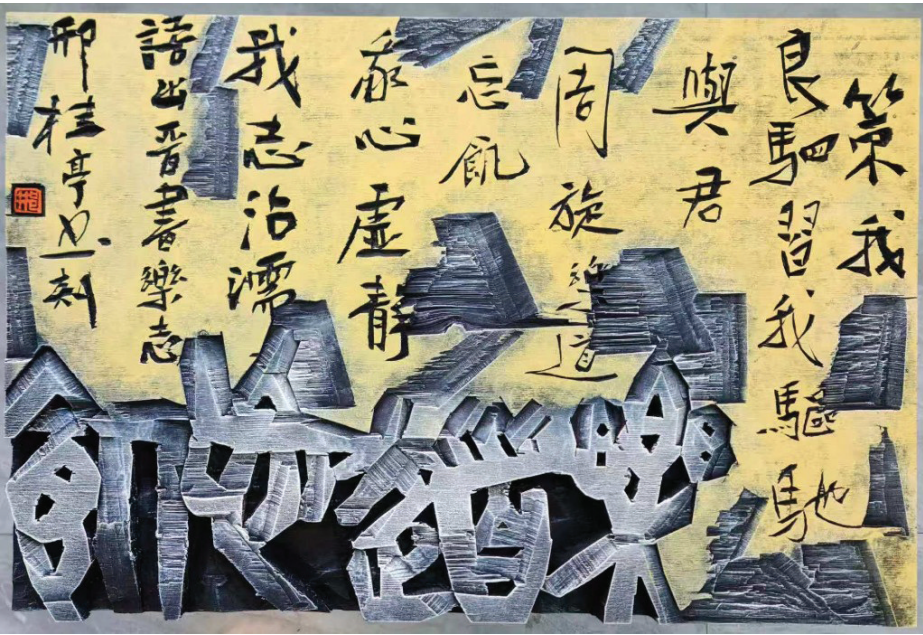 策我
良駟習我驅馳
與君
周旋樂道
忘飢
心虛靜
我志沾濡
語出晉書樂志
邢桂亭书刻
樂道忘飢